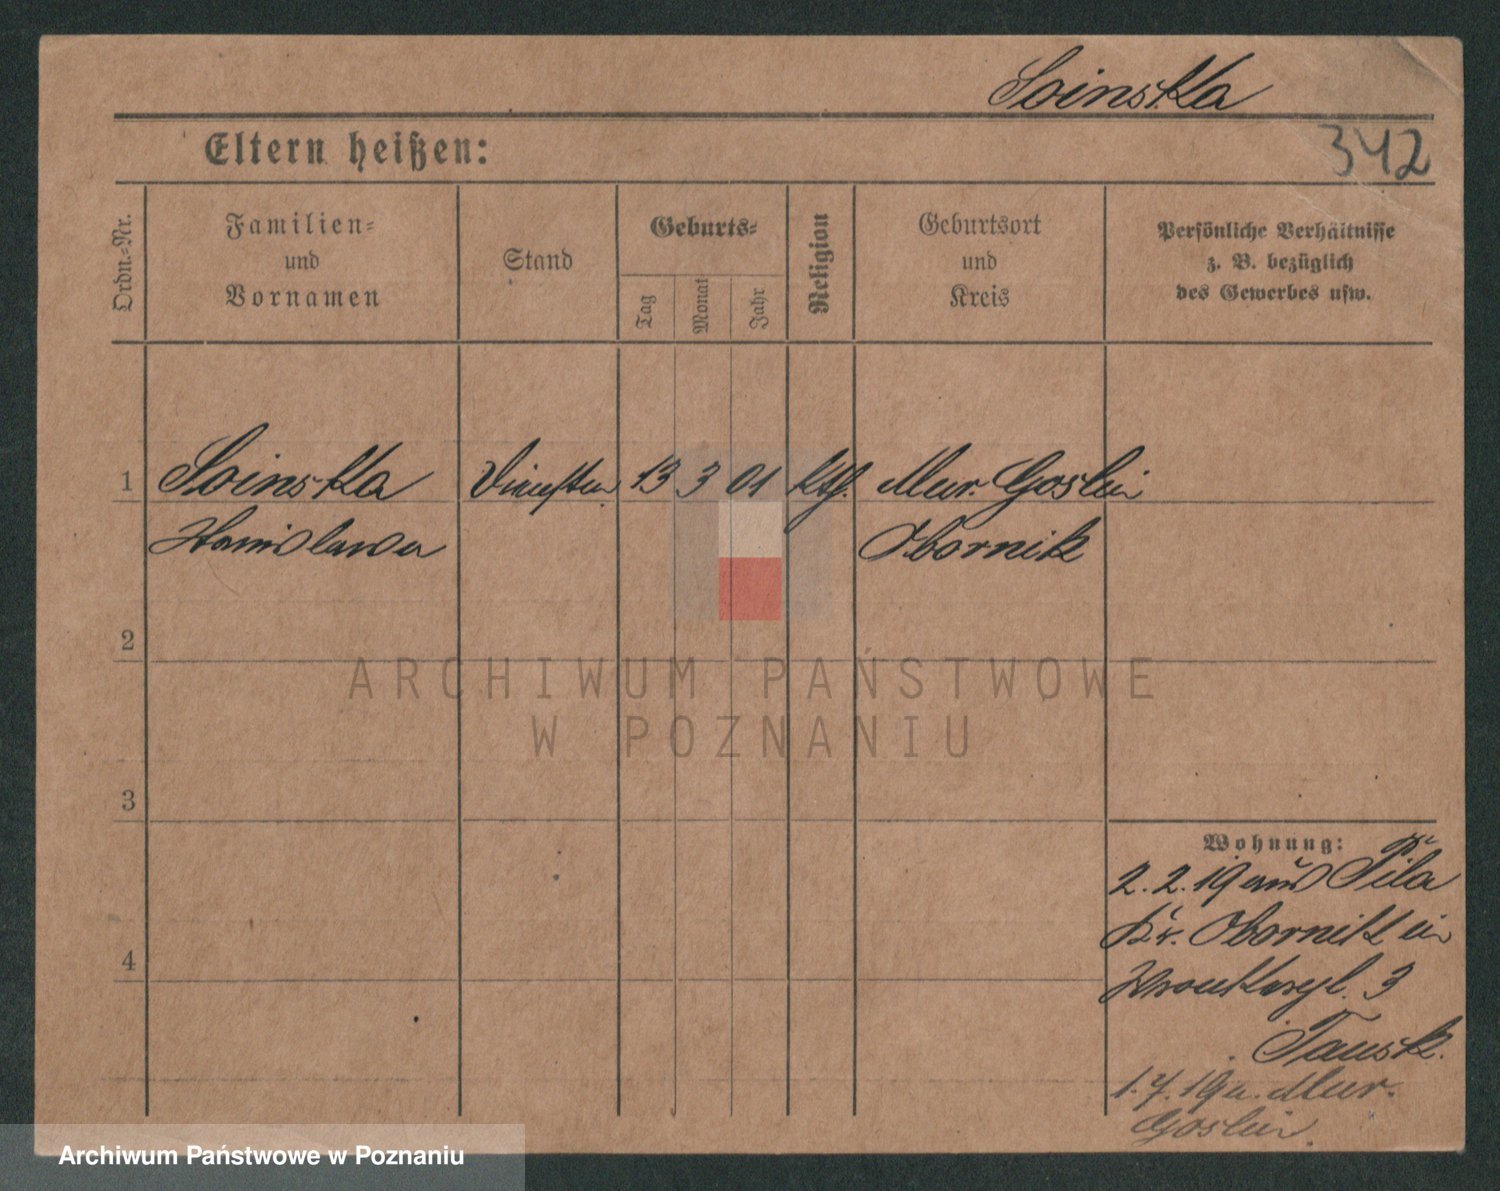 Soinska
Eltern heißen:
342
Ordn.-Nr.
Familien=
und
Vornamen
Stand
Geburts=
Tag
Monat
Jahr
Religion
Geburtsort
und
Kreis
Persönliche Verhältnisse
z. B. bezüglich
des Gewerbes usw.
1 Soinska 13 3 01 kth. Mur. Goslin
Stanislawa Obornik
2
3
4
Wohnung:
2.2.19 aus Pila
Kr. Obornik in
3
Tausk.
1.7.19 n. Mur.
Goslin.
ARCHIWUM PAŃSTWOWE
W POZNANIU
Archiwum Państwowe w Poznaniu